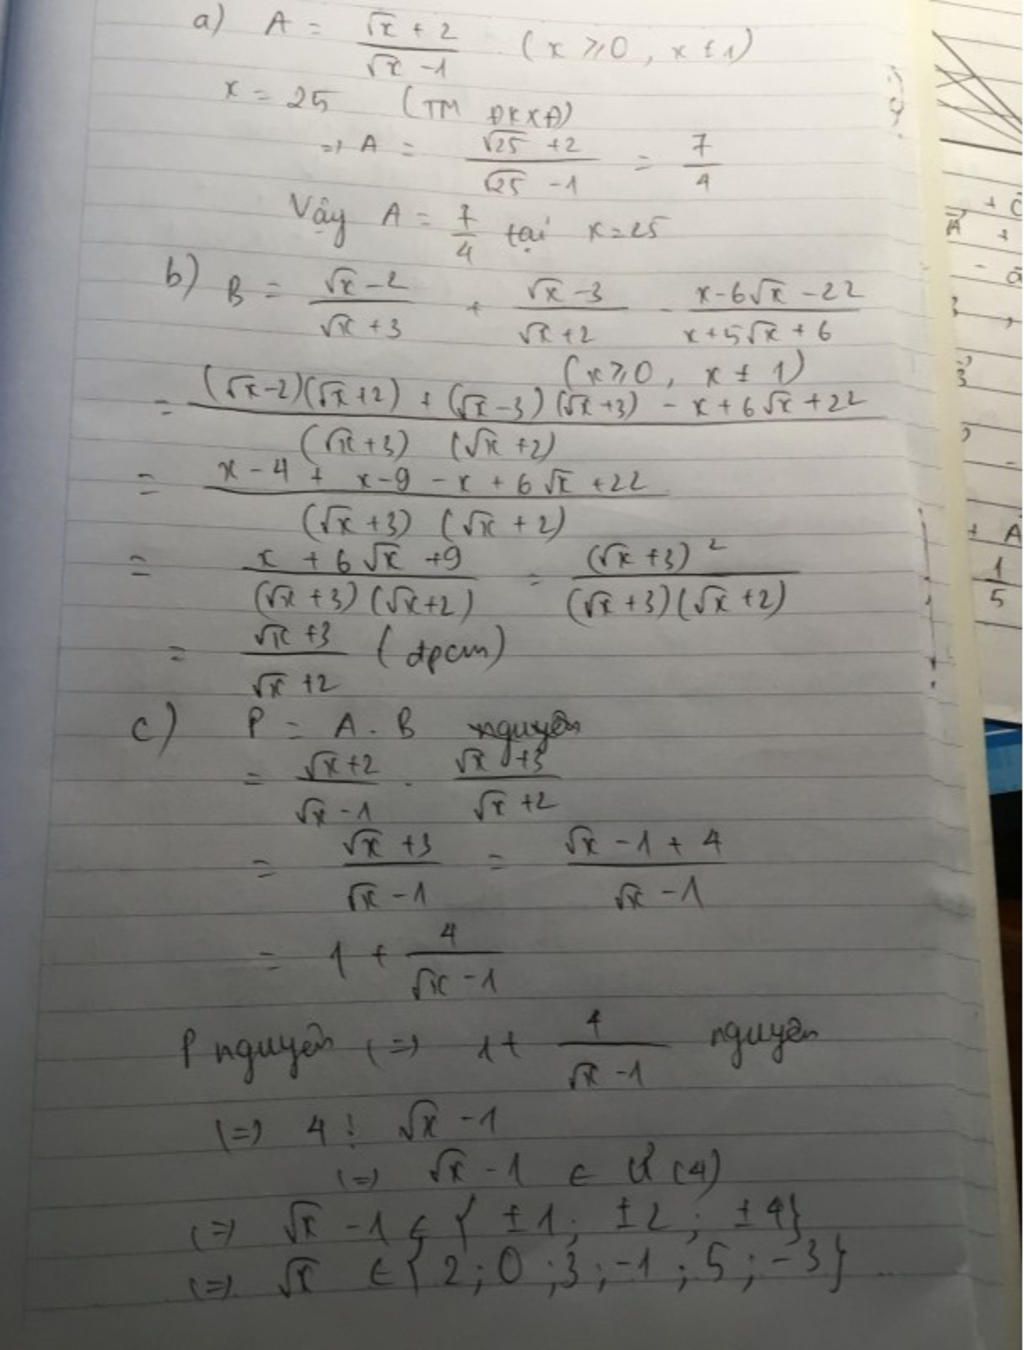 a) A = (√x + 2)/(√x - 1) (x ⩾ 0, x ≠ 1)
x = 25 (TM ĐKXĐ)
=> A = (√25 + 2)/(√25 - 1) = 7/4
Vậy A = 7/4 tại x = 25
b) B = (√x - 2)/(√x + 3) + (√x - 3)/(√x + 2) - (x - 6√x - 22)/(x + 5√x + 6)
(x ⩾ 0, x ≠ 1)
= ((√x - 2)(√x + 2) + (√x - 3)(√x + 3) - x + 6√x + 22)/((√x + 3)(√x + 2))
= (x - 4 + x - 9 - x + 6√x + 22)/((√x + 3)(√x + 2))
= (x + 6√x + 9)/((√x + 3)(√x + 2)) = (√x + 3)²/((√x + 3)(√x + 2))
= (√x + 3)/(√x + 2) (đpcm)
c) P = A . B nguyên
= (√x + 2)/(√x - 1) . (√x + 3)/(√x + 2)
= (√x + 3)/(√x - 1) = (√x - 1 + 4)/(√x - 1)
= 1 + 4/(√x - 1)
P nguyên (=) 1 + 4/(√x - 1) nguyên
(=) 4 ⋮ √x - 1
(=) √x - 1 ∈ Ư(4)
(=) √x - 1 ∈ { ±1; ±2; ±4}
(=) √x ∈ {2; 0; 3; -1; 5; -3}
+ C
A +
+ A
1/5